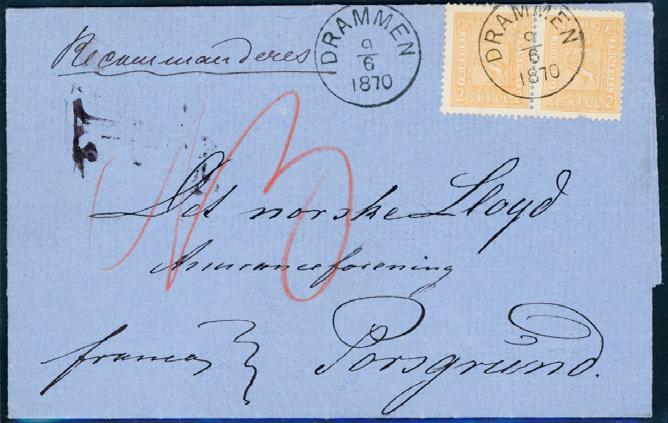 Recommanderes
DRAMMEN
9
6
1870
DRAMMEN
9
6
1870
NORGE
2 SKILL 2
2 SKILL 2
Det norske Lloyd
Assuranceforening
franco
Porsgrund.